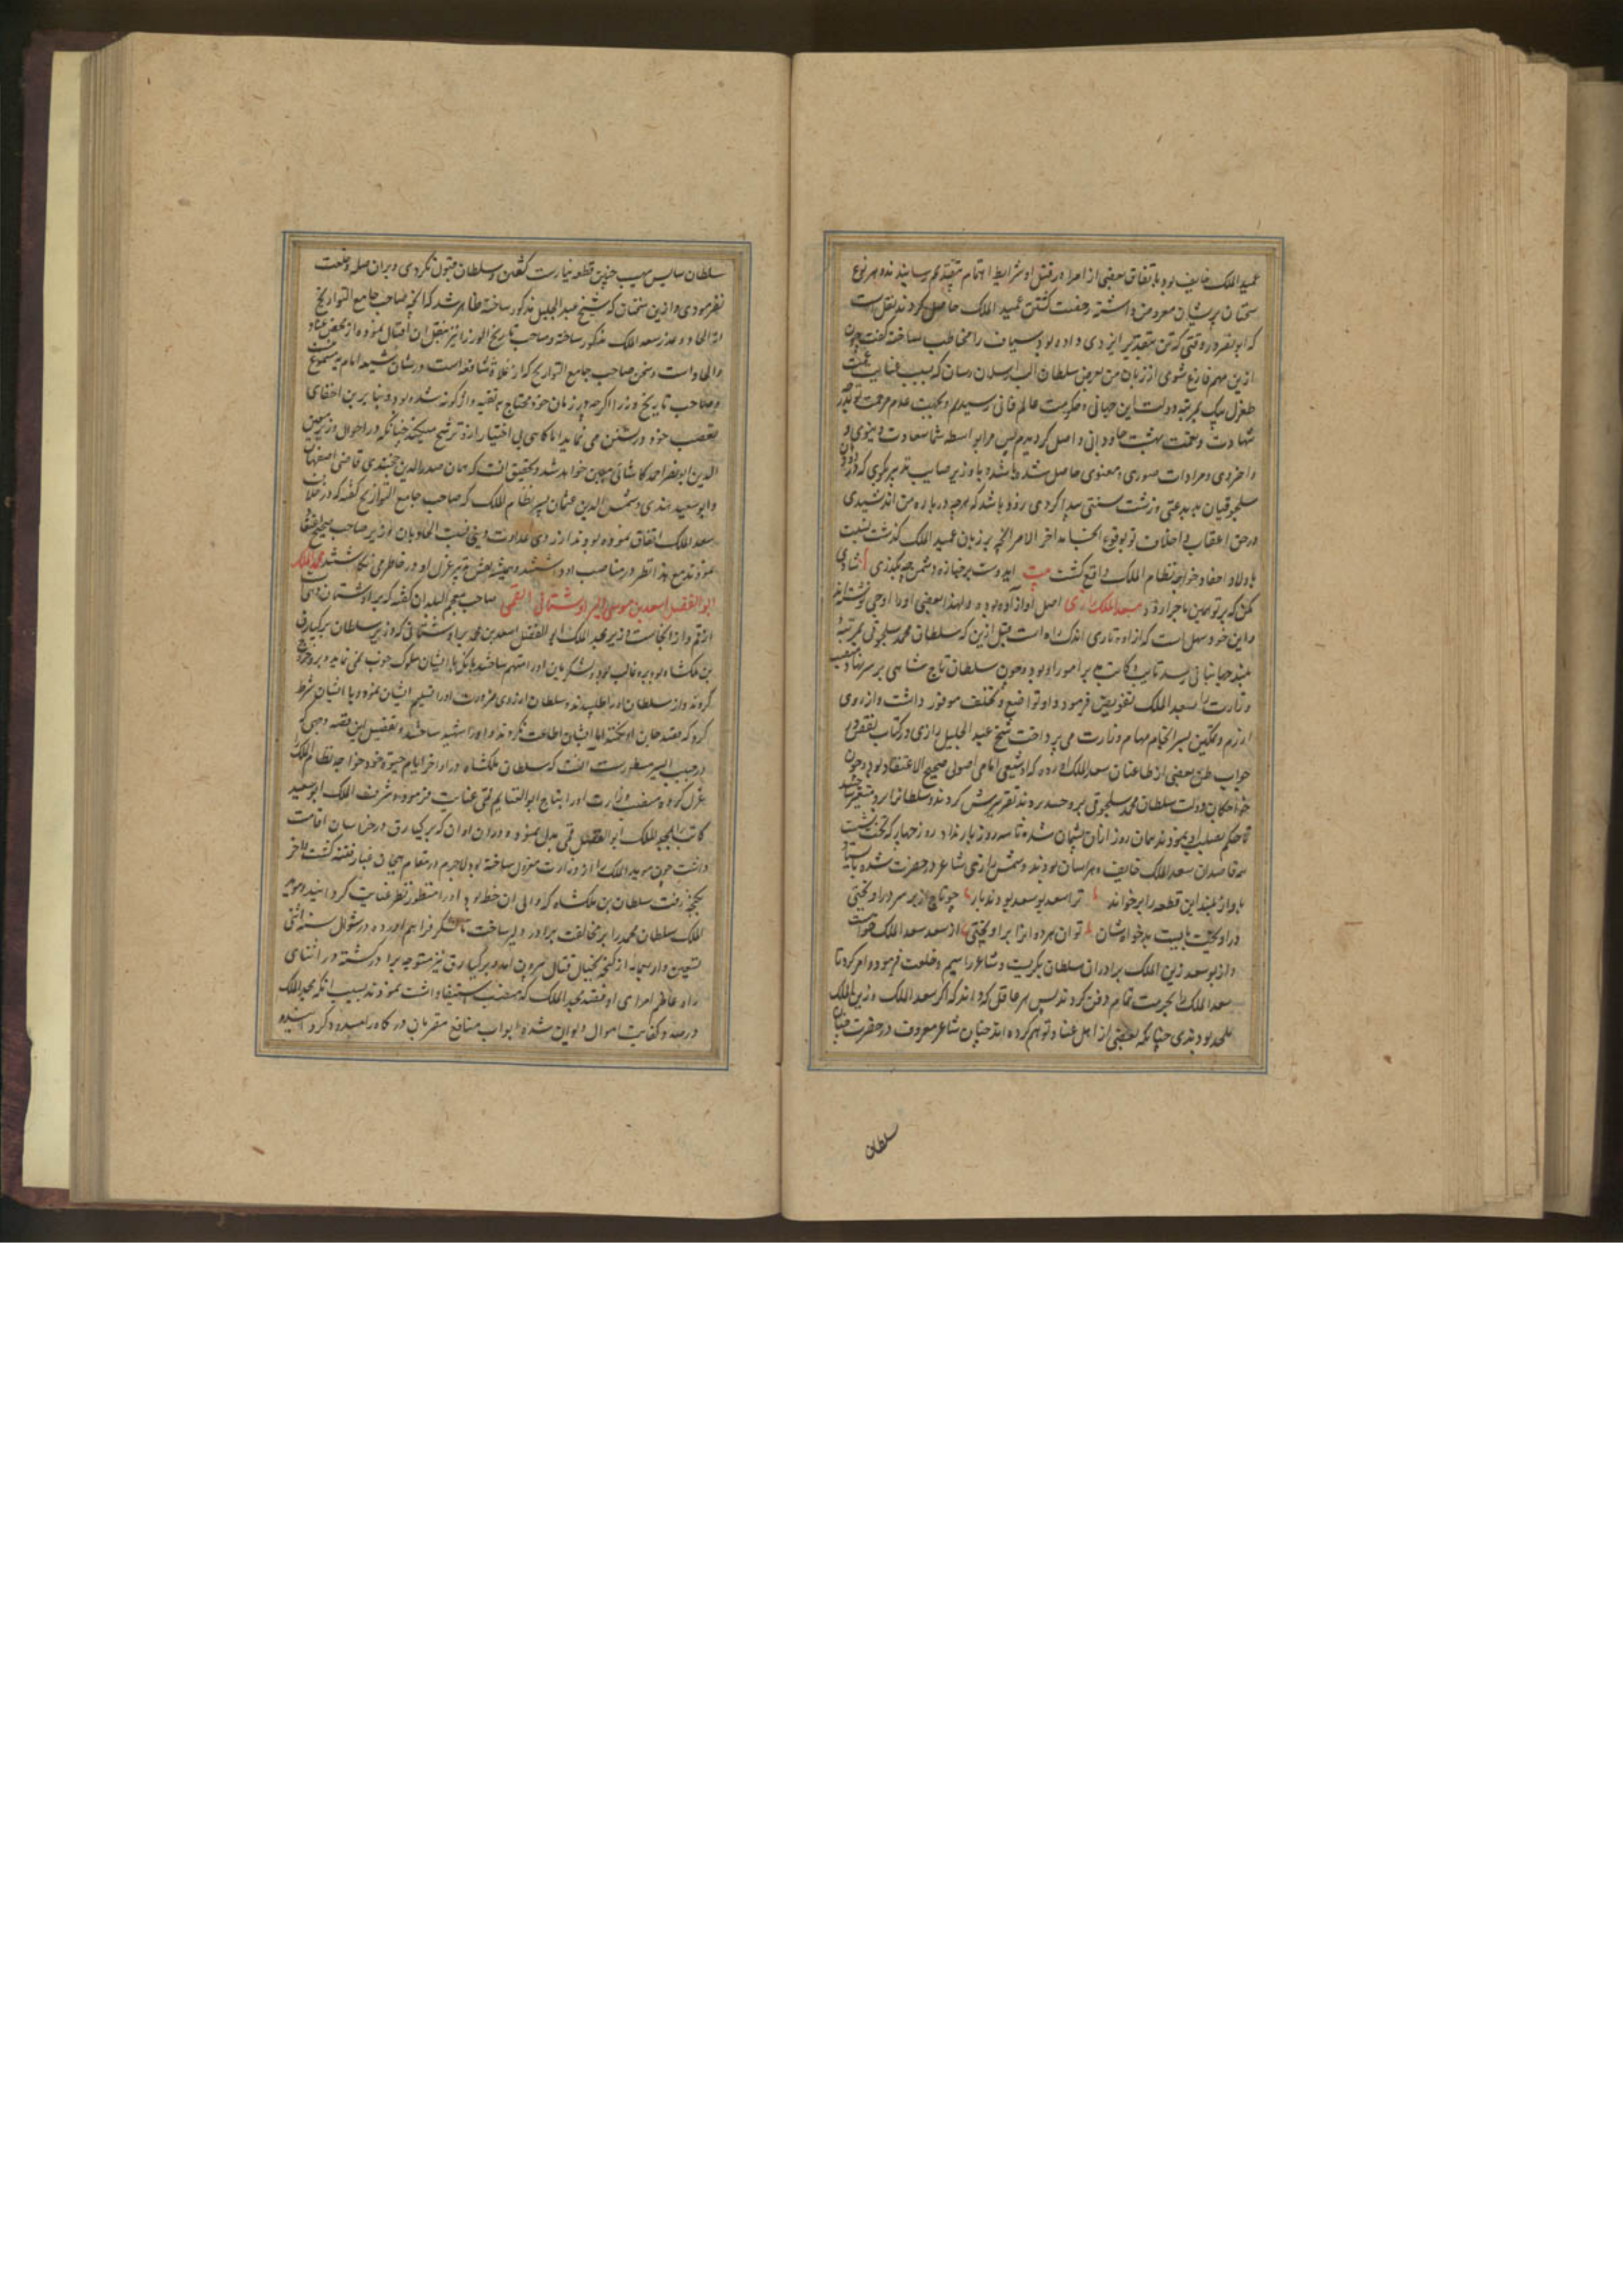 عمید الملک خایف بود باتفاق بعضی از امرا در قتل او شرایط اهتمام بتقدیم رسانیدند و بهر نوع
سخنان پریشان معروض داشته رخصت کشتن عمید الملک حاصل کردند نقل است
که ابو نصر در وقتی که تن بتقدیر ایزدی داده بود سیاف را مخاطب ساخته گفت چون
ازین مهم فارغ شوی از زبان من بعرض سلطان الب ارسلان رسان که بسبب عنایت عمت
طغرل بیک بمرتبه دولت این جهانی و حکومت عالم فانی رسیدم و بجهت عدم مرحمت تو بدرجه
شهادت و نعمت بهشت جاودانی واصل گردیدم پس مرا بواسطه شما سعادت دنیوی و
اخروی و مرادات صوری و معنوی حاصل شد و با وزیر صایب تدبیر بگوی که در دودمان
سلجوقیان بد بدعتی و زشت سنتی پیدا کردی زود باشد که هرچه درباره من اندیشیدی
در حق اعقاب و اخلاف تو بوقوع انجامد اخر الامر انچه بر زبان عمید الملک گذشت نسبت
باولاد و احفاد خواجه نظام الملک واقع گشت بیت ای دوست بر جنازه دشمن چو بگذری شادی
مکن که بر تو همین ماجرا رود سعد الملک رازی اصل او از آوه بوده و لهذا بعضی او را اوجی نوشته‌اند
و این خود سهل است که از اوه تا ری اندک راه است قبل ازین که سلطان محمد سلجوقی بمرتبه
بلند جهانبانی رسد نایب و کاتب امور او بود و چون سلطان تاج شاهی بر سر نهاد منصب
وزارت را بسعد الملک تفویض فرمود و او تواضع و تلطف موفور داشت و از روی
ازرم و تمکین بسرانجام مهام وزارت می پرداخت شیخ عبد الجلیل رازی در کتاب نقض در
جواب طعن بعضی از طاعنان سعد الملک اورده که او شیعی امامی اصولی صحیح الاعتقاد بود و چون
خواجگان دولت سلطان محمد سلجوقی برو حسد بردند تقریرش کردند و سلطان را برو متغیر ساختند
تا حکم بصلب او نمودند همان روز ازان پشیمان شده تا سه روز بار نداد روز چهارم که بتخت نشست
قاصدان سعد الملک خایف و هراسان بودند و شمس رازی شاعر در حضرت شده بایستاد
باواز بلند این قطعه را بر خواند ترا سعد و بو سعد بودند یار چو تاج از بر سر در اویختی
در اویخت بایست بدخواهشان تو آن هر دو انرا بر اویختی از سعد سعد الملک خواست
و از بو سعد زین الملک برادران سلطان بگریست و شاعر را سیم و خلعت فرموده امر کرد تا
سعد الملک را بحرمت تمام دفن کردند پس هر عاقل که داند که اگر سعد الملک و زین الملک
ملحد بودندی چنانکه بعضی از اهل عناد توهم کرده اند چنان شاعر معروف در حضرت چنان
سلطان
سلطان سایس مهیب چنین قطعه نیارست گفتن و سلطان قبول نکردی و بران صله و خلعت
نفرمودی و ازین سخنان که شیخ عبد الجلیل مذکور ساخته ظاهر شد که انچه صاحب جامع التواریخ
از الحاد و غدر سعد الملک مذکور ساخته و صاحب تاریخ الوزرا نیز بنقل ان اقتفا نموده از محض عناد
و الحاد است و سخن صاحب جامع التواریخ که از غلاة شافعیه است در شان شیعه امامیه مسموع نیست
و صاحب تاریخ وزرا اگرچه در زمان خود محتاج به تقیه واژگونه شده بود و بنا برین اخفای
تعصب خود در تسنن می نماید اما گاهی بی اختیار ازو ترشح میکند چنانکه در احوال وزیر معین
الدین ابو نصر احمد کاشانی مبین خواهد شد و تحقیق انست که همان صدر الدین خجندی قاضی اصفهان
و ابو سعید هندی و شمس الدین عثمان پسر نظام الملک که صاحب جامع التواریخ گفته که در خلاف
سعد الملک اتفاق نموده بودند از روی عداوت دینی نسبت الحاد بان وزیر صاحب صحیح اعتقاد
نمودند مع هذا نظر در مناصب او داشتند و همیشه نقش تدبیر عزل او در خاطر می نگاشتند مجد الملک
ابو الفضل اسعد بن موسی البراوستانی القمی صاحب معجم البلدان گفته که براوستان دهی است
از قم و از انجاست وزیر مجد الملک ابو الفضل اسعد بن محمد براوستانی که وزیر سلطان برکیارق
بن ملکشاه بود برو غالب بود و لشکریان او را متهم ساختند بانکه با ایشان سلوک خوب نمی نماید و برو خروج
کردند و از سلطان او را طلبیدند و سلطان از روی ضرورت او را تسلیم ایشان نموده با ایشان شرط
کرد که بقصد جان او نکنند اما ایشان اطاعت نکردند و او را شهید ساختند و تفصیل این قصه وجهی که
در حبیب السیر مسطورست انست که سلطان ملکشاه در اواخر ایام حیوة خود خواجه نظام الملک را
عزل کرده منصب وزارت او را بتاج ابو الغنایم قمی عنایت فرمود و شرف الملک ابو سعید
کاتب را بمجد الملک ابو الفضل قمی بدل نموده و دران اوان که برکیارق در خراسان اقامت
داشت چون موید الملک را از وزارت معزول ساخته بود لاجرم در مقام هیجان غبار فتنه گشت و اخر
بگنجه رفت سلطان بن ملکشاه که والی ان خطه بود او را منظور نظر عنایت گردانید و موید
الملک سلطان محمد را بر مخالفت برادر دلیر ساخت تا لشکر فراهم اورده در شوال سنه اثنی
و تسعین و اربعمایه از گنجه بخیال قتال بیرون امد و برکیارق نیز متوجه برادر گشته در اثنای
راه خاطر امرای او بقصد مجد الملک که منصب استیفا داشت نمودند بسبب انکه مجد الملک
در صدد کفایت اموال دیوان شده ابواب منافع مقربان درگاه را مسدود گردانیده